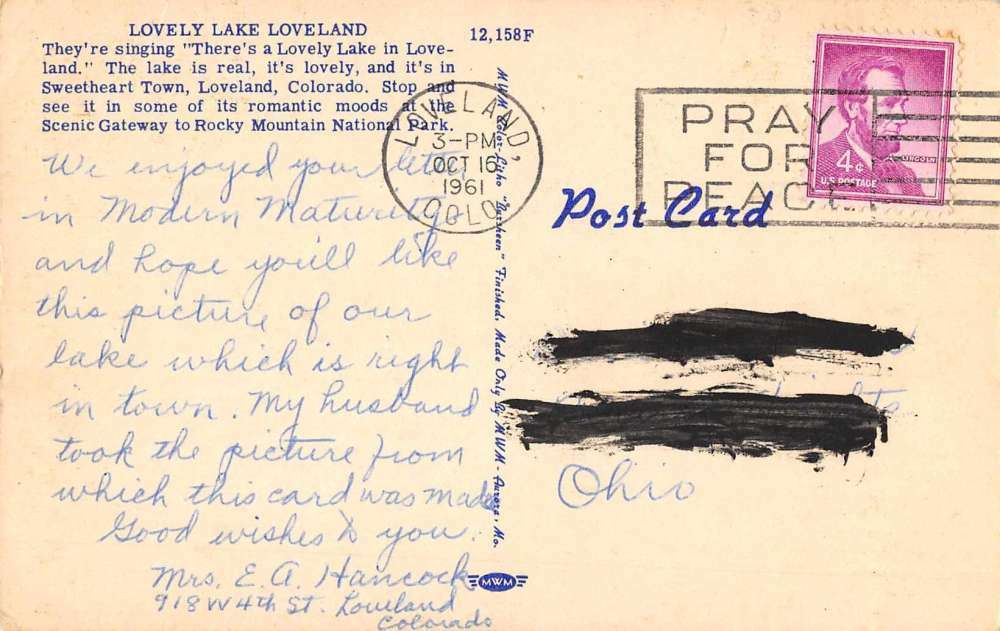 LOVELY LAKE LOVELAND
They're singing "There's a Lovely Lake in Love-
land." The lake is real, it's lovely, and it's in
Sweetheart Town, Loveland, Colorado. Stop and
see it in some of its romantic moods at the
Scenic Gateway to Rocky Mountain National Park.
12,158F
We enjoyed your letter
in Modern Maturity
and hope you'll like
this picture of our
lake which is right
in town. My husband
took the picture from
which this card was made
Good wishes to you.
Mrs. E. A. Hancock
918 W 4th St. Loveland
Colorado
MWM Color-Litho "Marsheen" Finished. Made Only By MWM - Aurora, Mo.
MWM
LOVELAND,
3-PM
OCT 16
1961
COLO.
PRAY
FOR
PEACE
4¢
LINCOLN
U.S. POSTAGE
Post Card
Ohio